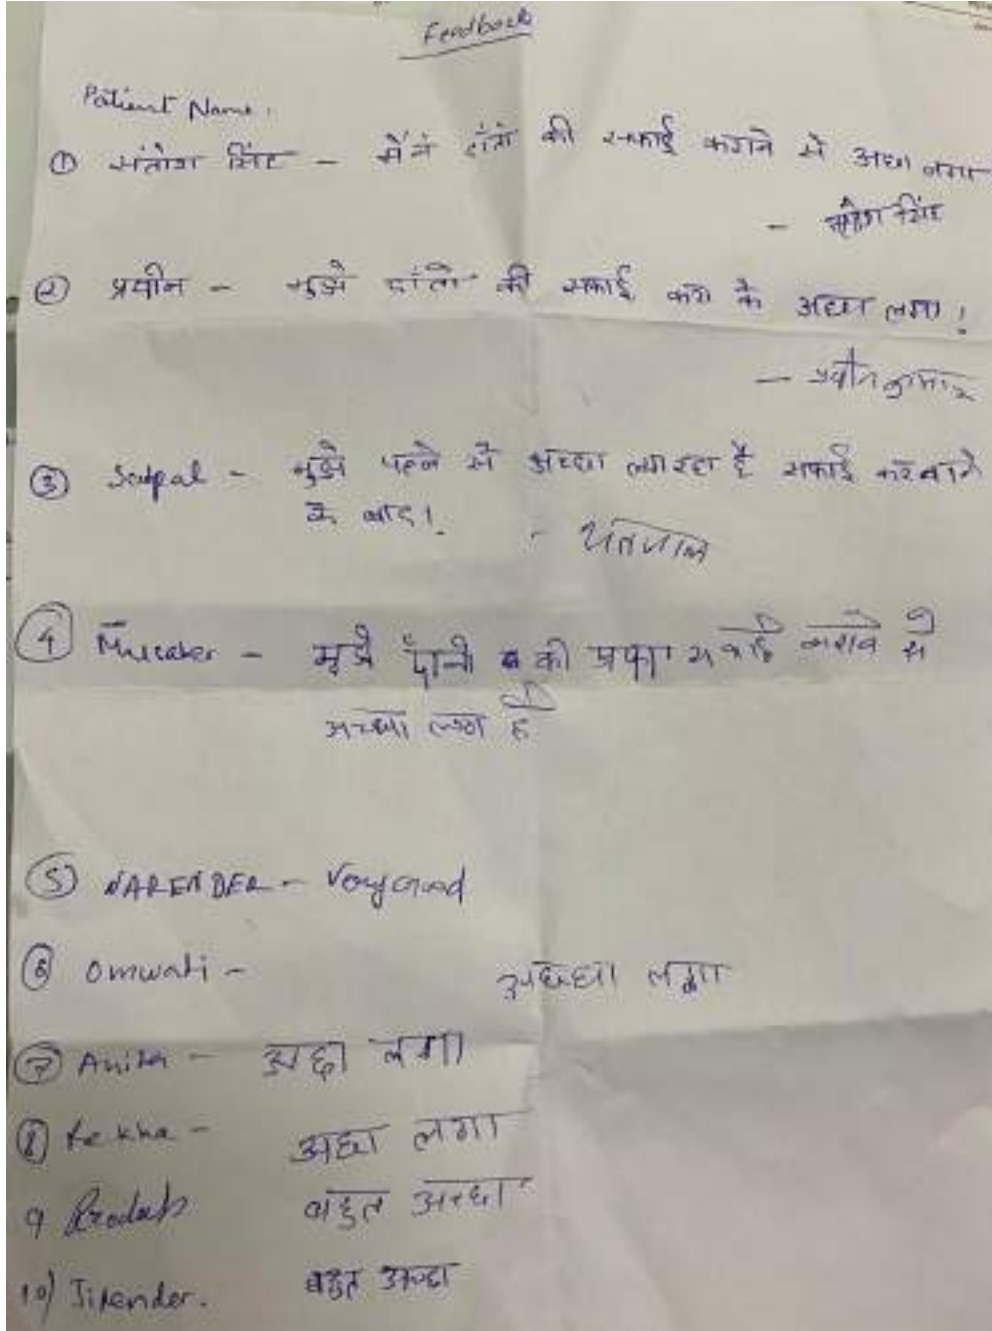 Feedback
Patient Name.
① संतोश सिंह - मैंने दांतो की सफाई कराने से अछा लगा
- संतोश सिंह
② प्रवीन - मुझे दांतो की सफाई करा के अछा लगा!
- प्रवीन कुमार
③ Satpal - मुझे पहले से अच्छा लग रहा है सफाई करवाने
के बाद।
④ - मुझे की सफाई से
अच्छा लगा है
⑤ NARENDER - Very Good
⑥ Omwati - अछछा लगा
⑦ Anita - अछा लगा
⑧ Rekha - अछा लगा
9 बहुत अच्छा
10) Jitender. बहुत अच्छा